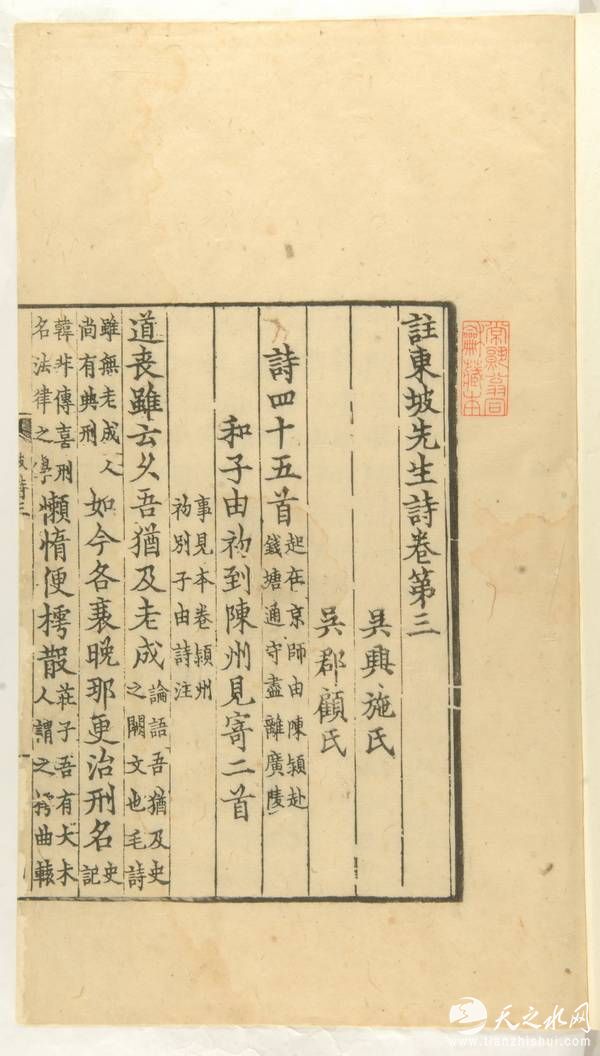 常熟翁同龢藏本
註東坡先生詩卷第三
吳興施氏
吳郡顧氏
詩四十五首 起在京師由陳潁赴錢塘通守盡離廣陵
和子由初到陳州見寄二首
事見本卷潁州初別子由詩注
道喪雖云久吾猶及老成 論語吾猶及史之闕文也毛詩
雖無老成人尚有典刑 如今各衰晚那更治刑名 史記
韓非傳喜刑名法律之學 懶惰便樗散 莊子吾有大木人謂之樗曲轅
坡詩三
天之水网
www.tianzhishui.com